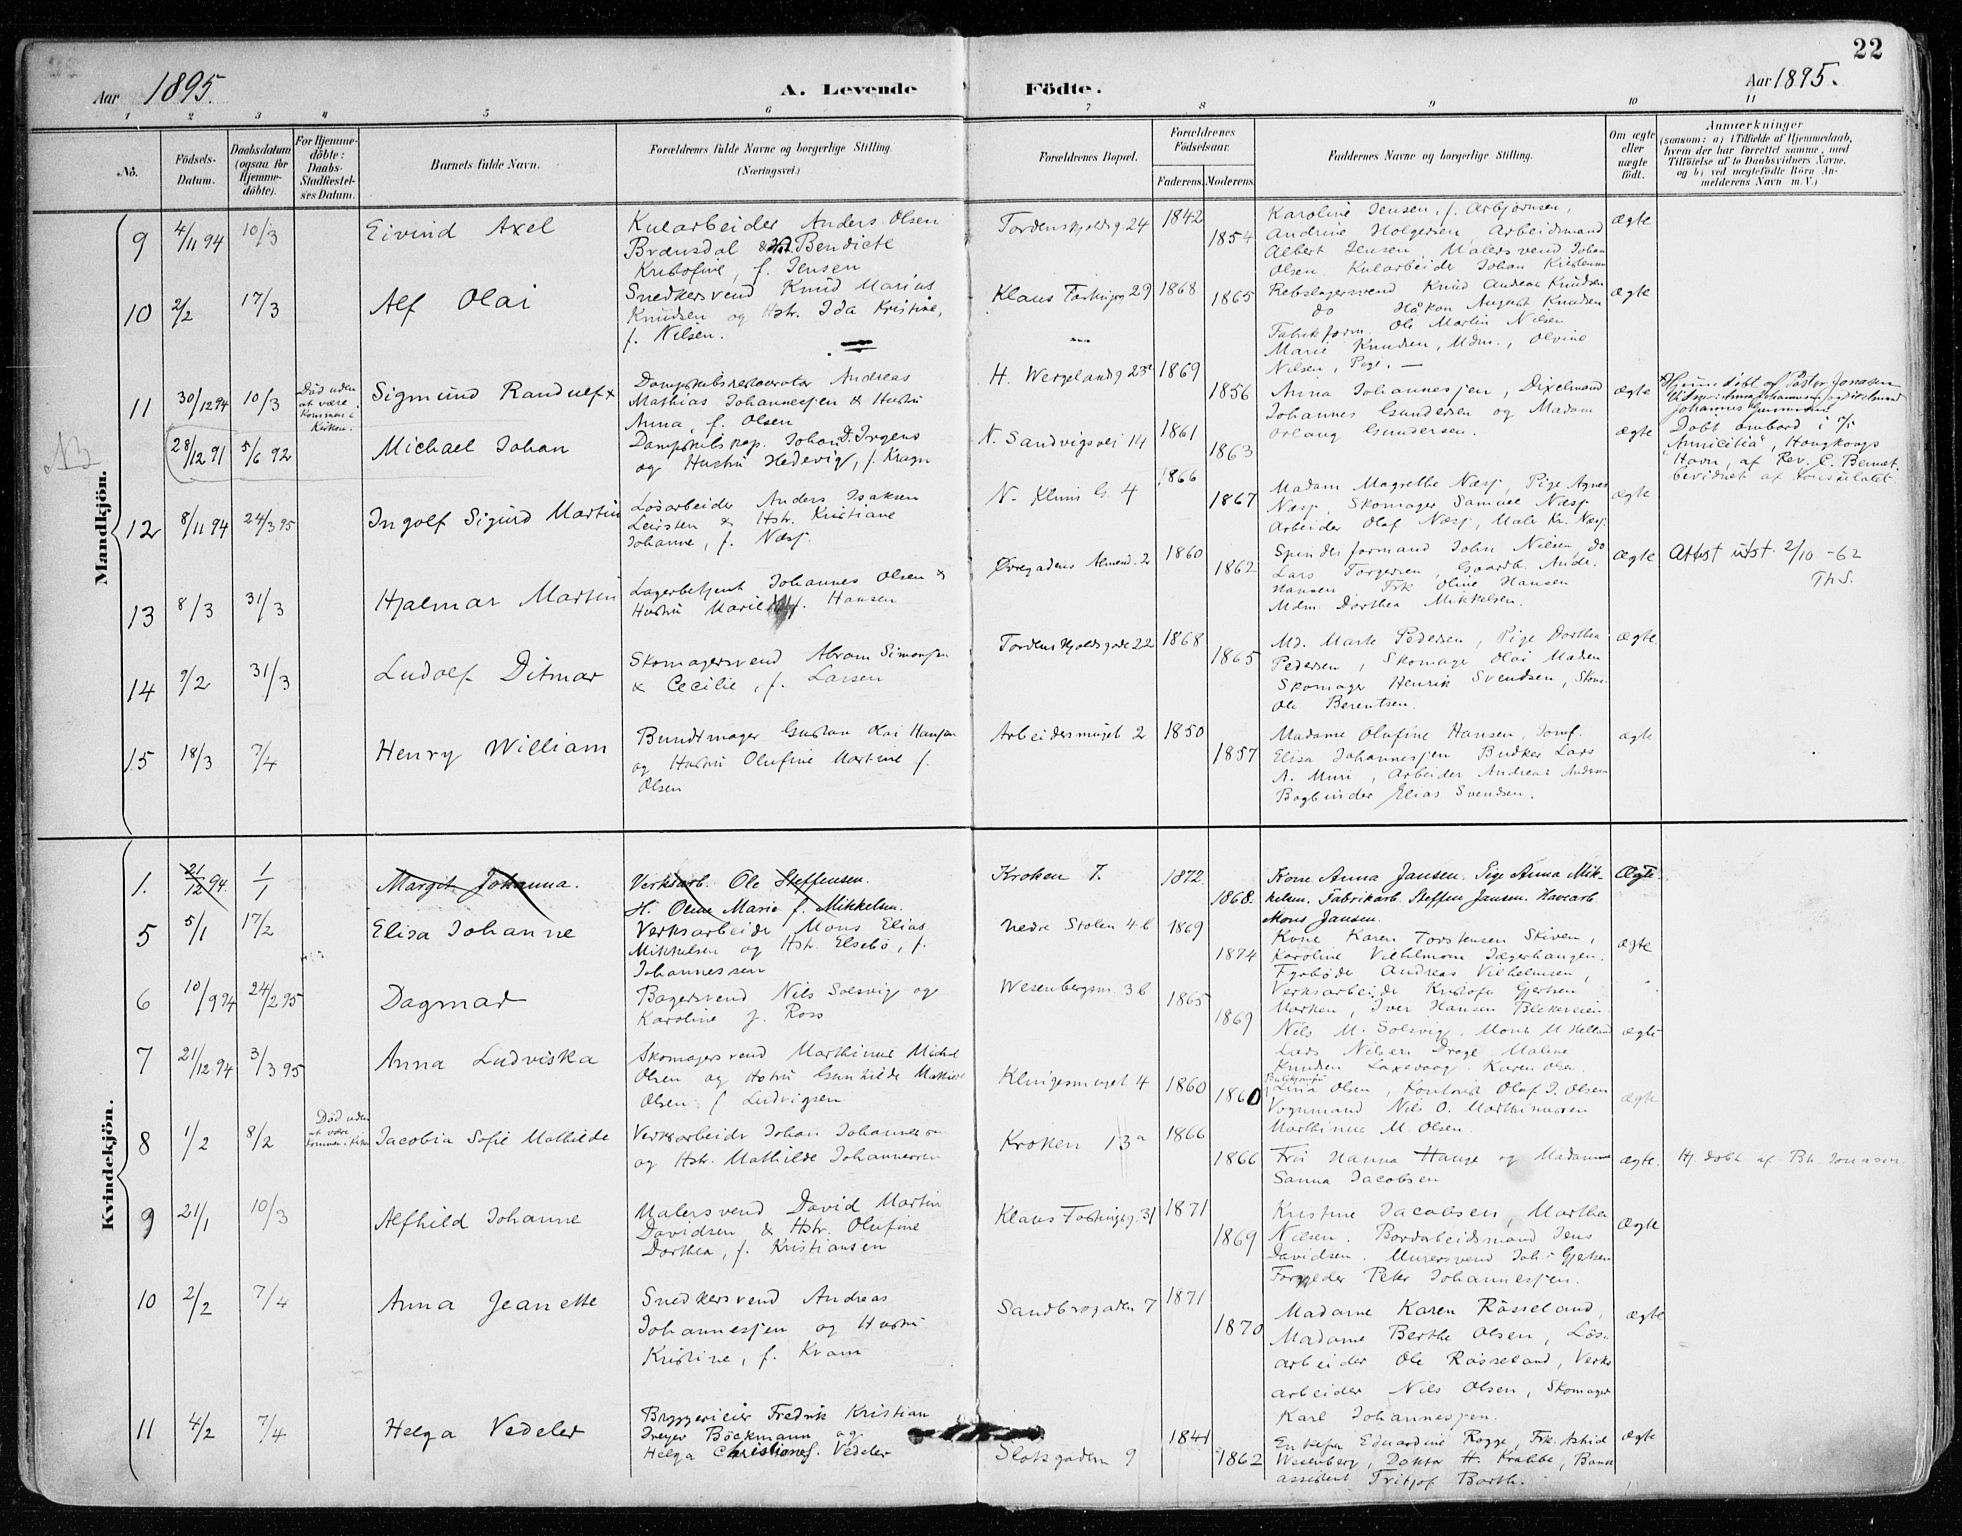 22
Aar 1895. A. Levende Födte. Aar 1895.
1 2 3 4 5 6 7 8 9 10 11
No.
Födsels-Datum.
Daabsdatum (ogsaa for Hjemmedöbte).
For Hjemmedöbte: Daabs-Stadfæstelses Datum.
Barnets fulde Navn.
Forældrenes fulde Navne og borgerlige Stilling. (Næringsvei.)
Forældrenes Bopæl.
Forældrenes Födselsaar.
Faderens. Moderens.
Faddernes Navne og borgerlige Stilling.
Om ægte eller uægte födt.
Anmærkninger
(saasom: a) i Tilfælde af Hjemmedaab,
hvem der har forrettet samme, med
Tilföielse af to Daabsvidners Navne,
og b) ved uægtefödte Börn An-
melderens Navn m. V.)
Mandkjön.
9 4/11 94 10/3 Eivind Axel
Kularbeider Anders Olsen
Brænsdal & Hst. Bendicte
Kristofine, f. Jensen
Tordenskjoldsg 24 1842 1854
Karoline Jensen, f. Asbjørnsen,
Andrine Holgersen, Arbeidsmand
Albert Jensen, Malersvend Johan
Olsen, Kularbeider Johan Kristensen
ægte
10 2/2 17/3 Alf Olai
Snedkersvend Knud Marius
Knudsen og Hstr. Ida Kristine,
f. Nilsen.
Klaus Fastingsg 29 1868 1865
Rebslagersvend Knud Andreas Knudsen
do Håkon August Knudsen
Fabrikform. Ole Martin Nilsen
Marie Knudsen, Mdm., Olvine
Nilsen, Pige. —
ægte
11 30/12 94 10/3 Død uden at være kommen i Kirken. Sigmund Randulf x
Dampskibsrestauratør Andreas
Mathias Johannesjen & Hustru
Anna, f. Olsen
H. Wergelandsg 23a 1869 1856
Anna Johannesjen, Dixelmand
Johannes Gundersen og Madam
Gundersen.
ægte
x Hjemmedøbt af Pastor Jonassen
NB 28/12 91 5/6 92 Michael Johan
Dampskibskap. Johan D. Irgens
og Hustru Hedevig, f. Kragn
N. Sandvigsvei 14 1861 1863
ægte
Døbt ombord i
"Amicitia", Hongkongs
Havn, af Rev. C. Bennet.
bevidnet af Konsulatet
12 8/11 94 24/3 95 Ingolf Sigurd Martin
Løsarbeider Anders Isaksen
Leirsten & Hstr. Kristiane
Johanne, f. Næss.
N. Klims G. 4 1866 1867
Madam Magrethe Næss, Pige Agnes
Næss, Skomager Samuel Næss
Arbeider Olaf Næss, Maler Kr. Næss.
ægte
13 8/3 31/3 Hjalmar Martin
Lagerbetjent Johannes Olsen &
Hustru Marie f. Hansen
Øvregadens Almend. 2 1860 1862
Spinderformand John Nilsen, do
Lars Torgersen, Gaardb. Andr.
Hansen Frk Oline Hansen
Mdm. Dorthea Mikkelsen.
ægte
Attest utst. 2/10 -62
Th S.
14 9/2 31/3 Ludolf Ditmar
Skomagersvend Abram Simonsen
& Cecilie, f. Larsen
Tordenskjoldsgade 22 1868 1865
Md. Marte Pedersen, Pige Dorthea
Pedersen, Skomager Olai Madsen
Skomager Henrik Svendsen, Skom.
Ole Berentsen.
ægte.
15 18/3 7/4 Henry William
Bundtmager Gustav Olai Hansen
og Hustru Olufine Martine f.
Olsen
Arbeidersmuget 2 1850 1857
Madame Olufine Hansen, Jomf.
Elisa Johannesjen Bødker Lars
A. Muri, Arbeider Andreas Andersen
Bogbinder Elias Svendsen.
ægte
Kvindekjön.
1. 21/12 94. 1/1 Margit Johanna.
Verksarb. Ole Steffensen.
H. Oline Marie f. Mikkelsen.
Kroken 7. 1872 1868.
Kone Anna Jansen. Pige Anna Mik-
kelsen. Fabrikarb. Steffen Jansen. Havearb.
Mons Jansen.
Ægte.
5 5/1 17/2 Elisa Johanne
Verksarbeider Mons Elias
Mikkelsen og Hstr. Elsebø, f.
Johannessen
Nedre Stølen 4 b 1869 1874
Kone Karen Torstensen Skiven,
Karoline Vilhelmsen Jægerhaugen.
Fyrbøder Andreas Vilhelmsen,
Verksarbeider Kristofer Gjertsen
ægte
6 10/9 94 24/2 95 Dagmar
Bagersvend Nils Solsvig og
Karoline f. Ross
Wesenbergsm. 3 b 1865 1869
Marken, Iver Hansen Blekeveien
Nils M. Solsvig, Mons M Helland
Lars Nilsen Drage Malene
Knudsen Laxevaag. Karen Olsen
ægte
7 21/12 94 3/3 95 Anna Ludviska
Skomagersvend Marthinus Michal
Olsen og Hstru Gunhilde Mathilde
Olsen f Ludvigsen
Klingesmuget 4 1860 1860
Lina Olsen, Kontorist Olaf J. Olsen
Vognmand Nils O. Marthinussen
Marthinus M. Olsen.
ægte
8 1/2 8/2 Død uden at være kommen i Kirken Jacobia Sofie Mathilde
Verksarbeider Johan Johannessen
og Hstr. Mathilde Johannessen
Kroken 13 a 1866 1866
Fru Hanna Hauge og Madamme
Sanna Jacobsen
ægte.
Hj. døbt af Pst. Jonassen.
9 21/1 10/3 Alfhild Johanne
Malersvend David Martin
Davidsen & Hstr. Olufine
Dorthea, f. Kristiansen
Klaus Fastingsg. 31 1871 1869
Kristine Jacobsen, Martha
Nilsen. Bordarbeidsmand Jens
Davidsen. Murersvend Joh. Gjertsen
Forgylder Peter Johannesjen.
Ægte
10 2/2 7/4 Anna Jeanette
Snedkersvend Andreas
Johannesjen og Hustru
Kristine, f. Kvam
Sandbrogaden 7 1871 1870
Madame Karen Røsseland,
Madame Berthe Olsen, Løs-
arbeider Ole Røsseland, Verks
arbeider Nils Olsen, Skomager
Karl Johannesjen.
Ægte
11 4/2 7/4 Helga Vedeler
Bryggerieier Fredrik Kristian
Dreyer Böckmann og
Helga Christiane f. Vedeler
Slotsgaden 9 1841 1862
Enkefru Eduardine Rogge, Frk. Astrid
Wesenberg, Doktor H. Krabbe, Bank
assistent Fritjof Barth.
Ægte